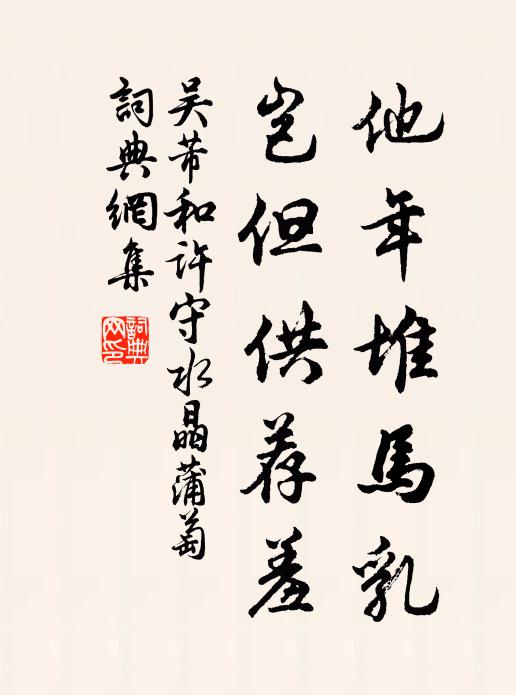 他年堆馬乳
岂但供荐羞
吴芾和许守水晶蒲萄
詞典網集
詞典网印